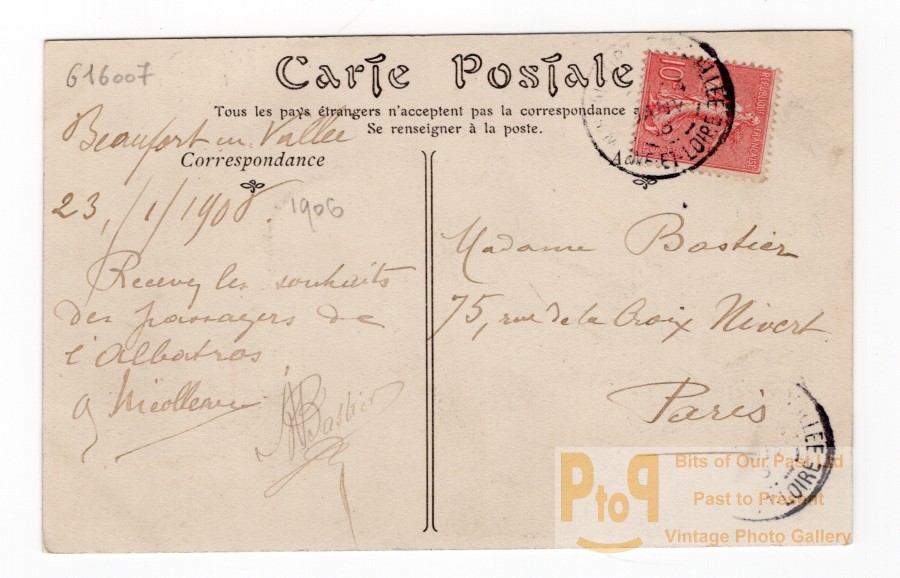 616007
Carte Postale
Tous les pays étrangers n'acceptent pas la correspondance a
Se renseigner à la poste.
Correspondance
Beaufort en Vallée
23/1/1908.
1906
Recevez les souhaits
des passagers de
l'Albatros
Bastier
Madame Bastier
75, rue de la Croix Nivert
Paris
10
REPUBLIQUE FRANÇAISE
VALLEE
ET-LOIRE
LLEE
LOIRE
PtoP
Bits of Our Past Ltd
Past to Present
Vintage Photo Gallery